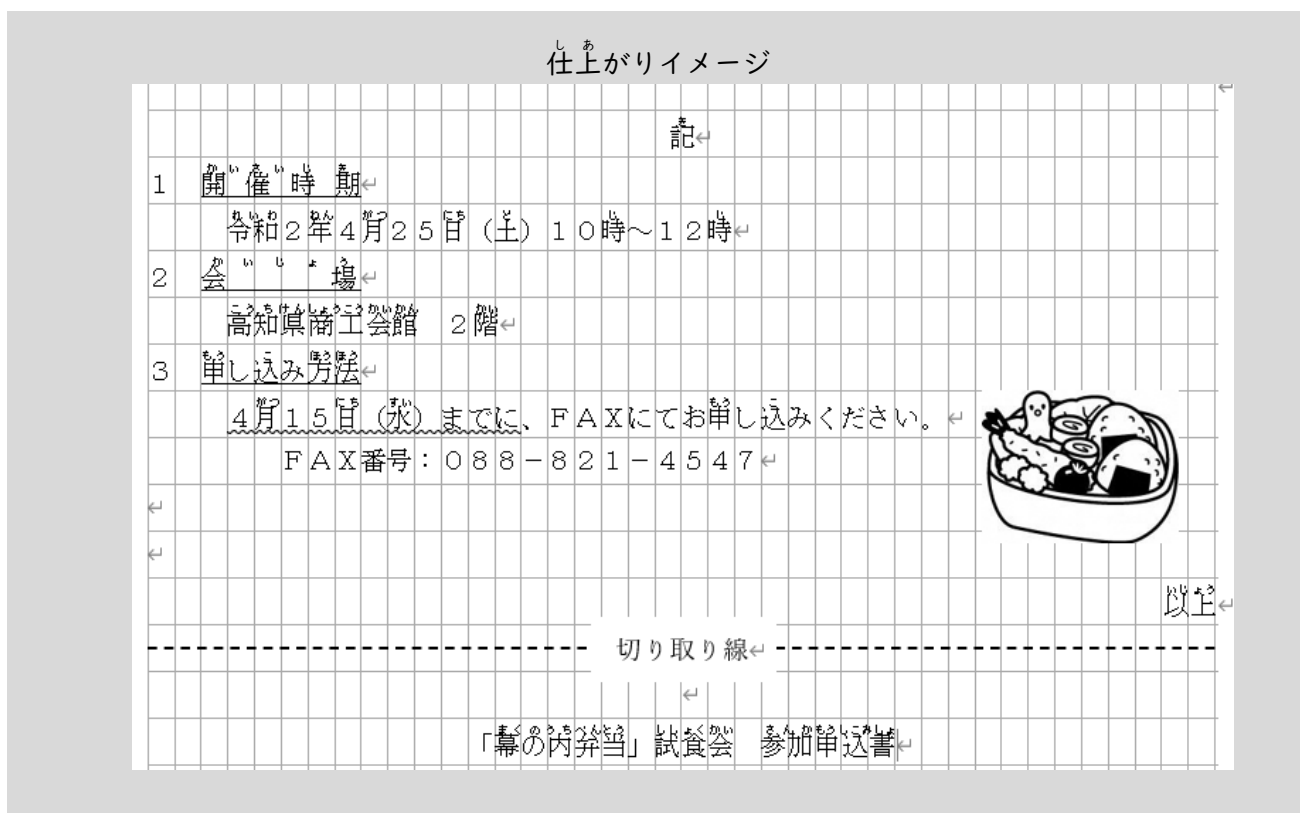 仕上がりイメージ
記
1 開催時期
令和2年4月25日（土）10時～12時
2 会場
高知県商工会館 2階
3 申し込み方法
4月15日（水）までに、FAXにてお申し込みください。
FAX番号：088－821－4547
以上
切り取り線
「幕の内弁当」試食会 参加申込書